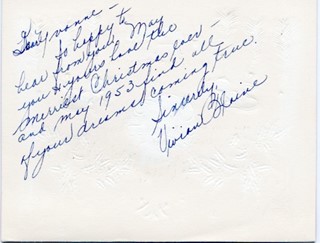 Dear Yvonne –
So happy to
hear from you. May
you & yours have the
Merriest Christmas ever –
and may 1953 find all
of your dreams coming true.
Sincerely,
Vivian Blaine